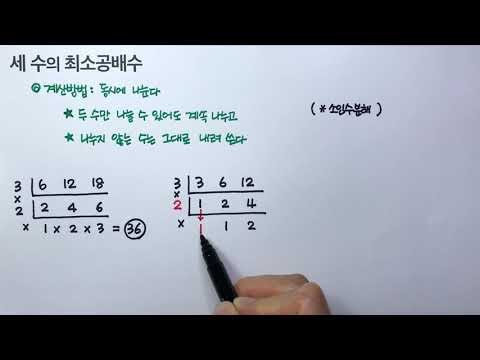 세 수의 최소공배수
◎ 계산방법 : 동시에 나눈다
★ 두 수만 나눌 수 있어도 계속 나누고
( * 소인수분해 )
★ 나누지 않는 수는 그대로 내려 쓴다
3 6 12 18
×
2 2 4 6
× 1 × 2 × 3 = 36
3 3 6 12
×
2 1 2 4
× 1 1 2